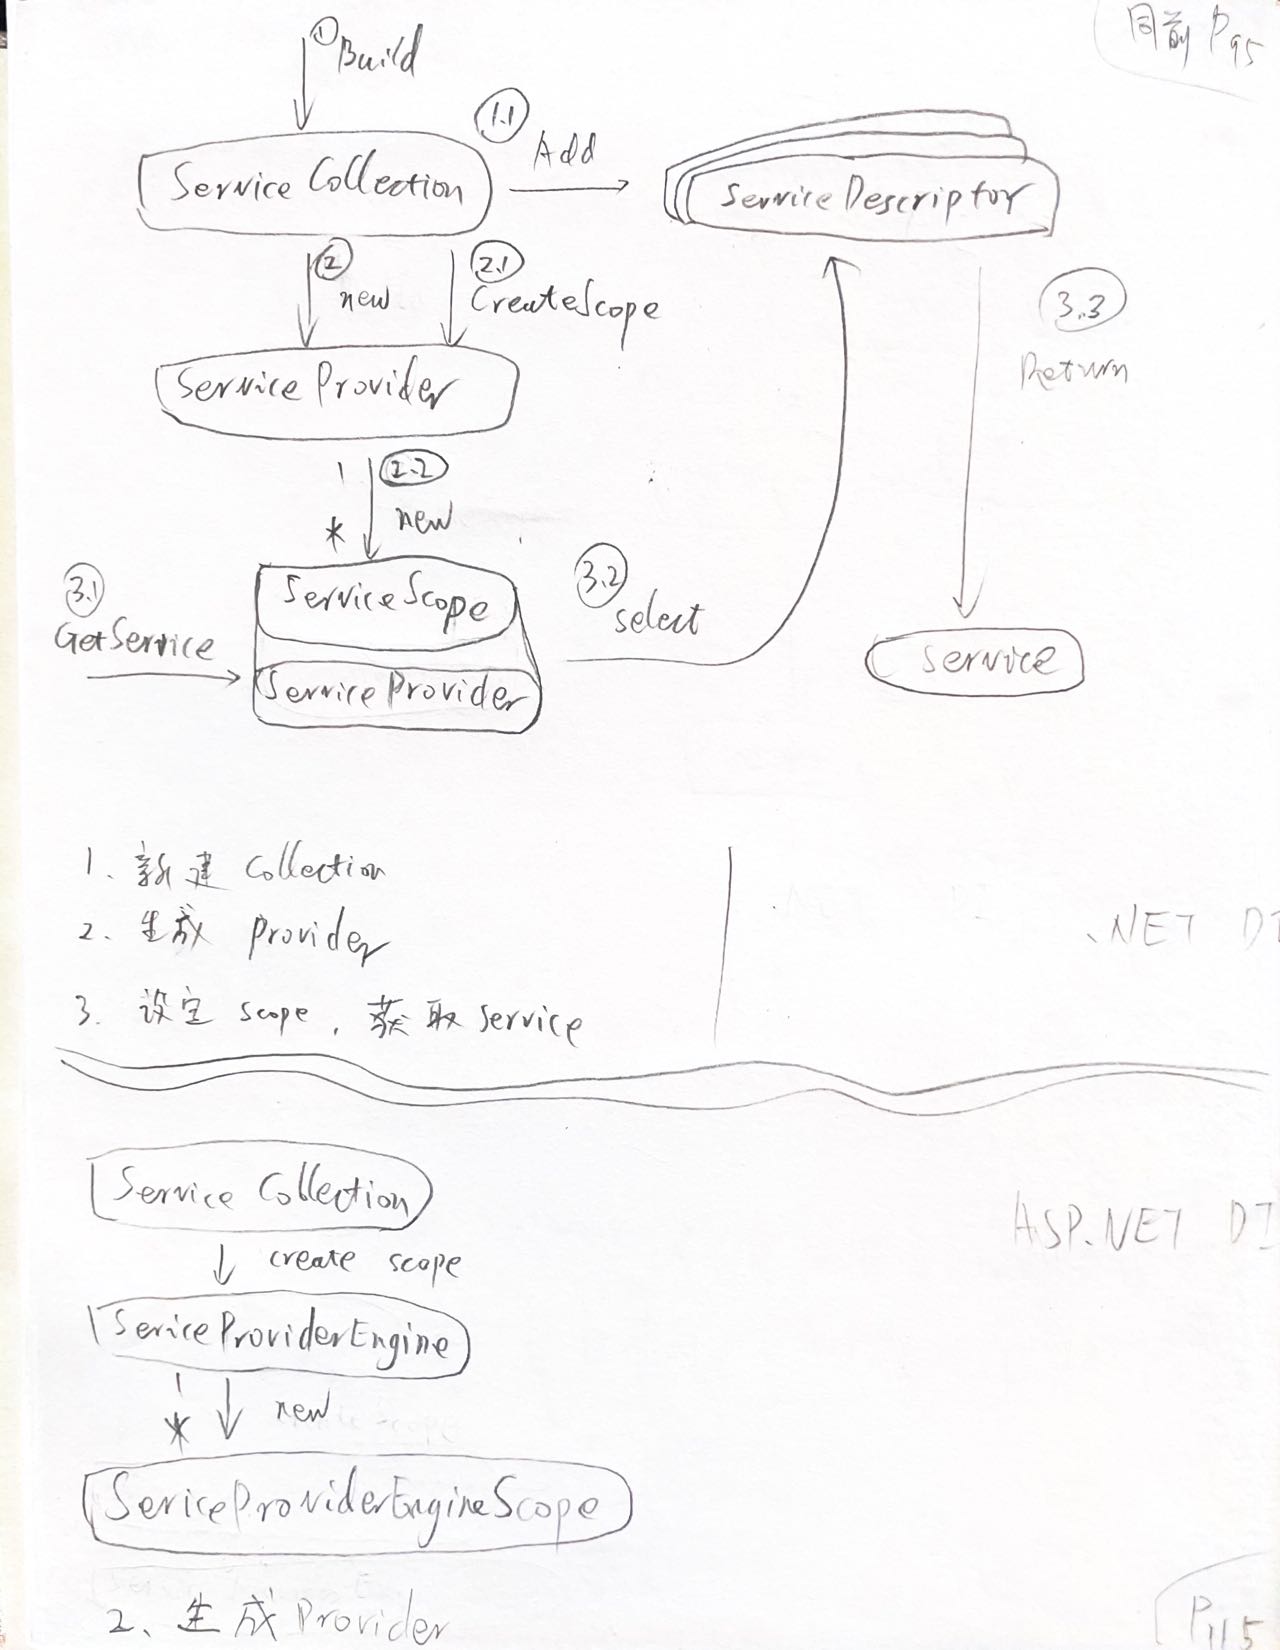 同前 P95
① Build
1.1
Add
Service Collection
ServiceDescriptor
②
new
2.1
CreateScope
3.3
Return
Service Provider
1
2.2
*
new
3.1
GetService
ServiceScope
ServiceProvider
3.2
select
service
1. 新建 Collection
2. 生成 Provider
3. 设定 scope, 获取 service
.NET DI
Service Collection
ASP.NET DI
create scope
SericeProviderEngine
1
*
new
SericeProviderEngineScope
2、生成 Provider
P115